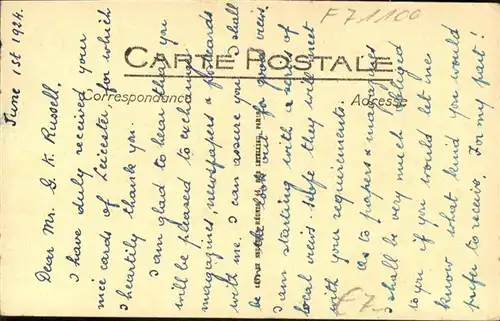 F 71100
CARTE POSTALE
Correspondance
Adresse
June 1st 1924.
Dear Mr. G. K. Russell,
I have duly received your
nice cards of Leicester for which
I heartily thank you.
I am glad to hear that you
will be pleased to exchange
magazines, newspapers & postcards
with me. I can assure you I shall
be on the look out for good views.
I am starting with a series of
local views. Hope they will meet
with your requirements.
As to papers & magazines
I shall be very much obliged
to you if you would let me
know what kind you would
prefer to receive. For my part!
£7-